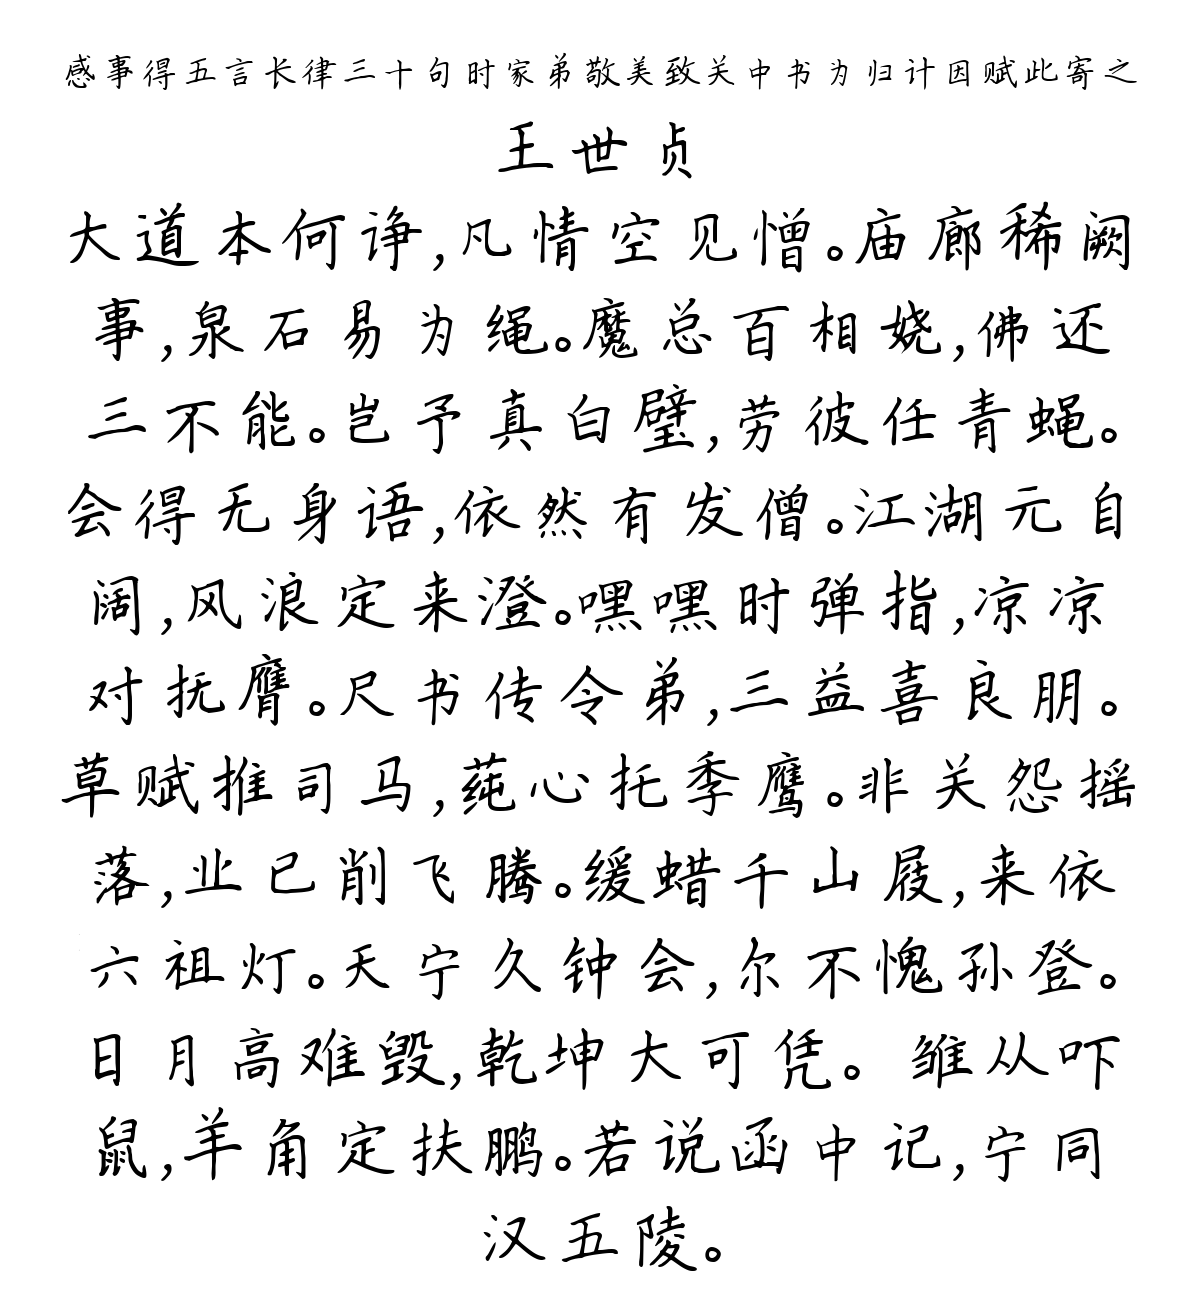 感事得五言长律三十句时家弟敬美致关中书为归计因赋此寄之
王世贞
大道本何诤,凡情空见憎。庙廊稀阙
事,泉石易为绳。魔总百相娆,佛还
三不能。岂予真白璧,劳彼任青蝇。
会得无身语,依然有发僧。江湖元自
阔,风浪定来澄。嘿嘿时弹指,凉凉
对抚膺。尺书传令弟,三益喜良朋。
草赋推司马,莼心托季鹰。非关怨摇
落,业已削飞腾。缓蜡千山屐,来依
六祖灯。天宁久钟会,尔不愧孙登。
日月高难毁,乾坤大可凭。 雏从吓
鼠,羊角定扶鹏。若说函中记,宁同
汉五陵。